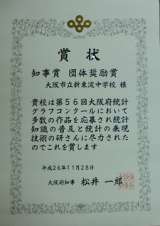 賞状
知事賞 団体奨励賞
大阪市立新東淀中学校 様
貴校は第56回大阪府統計
グラフコンクールにおいて
多数の作品を応募され統計
知識の普及と統計の表現
技術の研さんに尽力された
のでこれを賞します
平成26年11月28日
大阪府知事 松井一郎